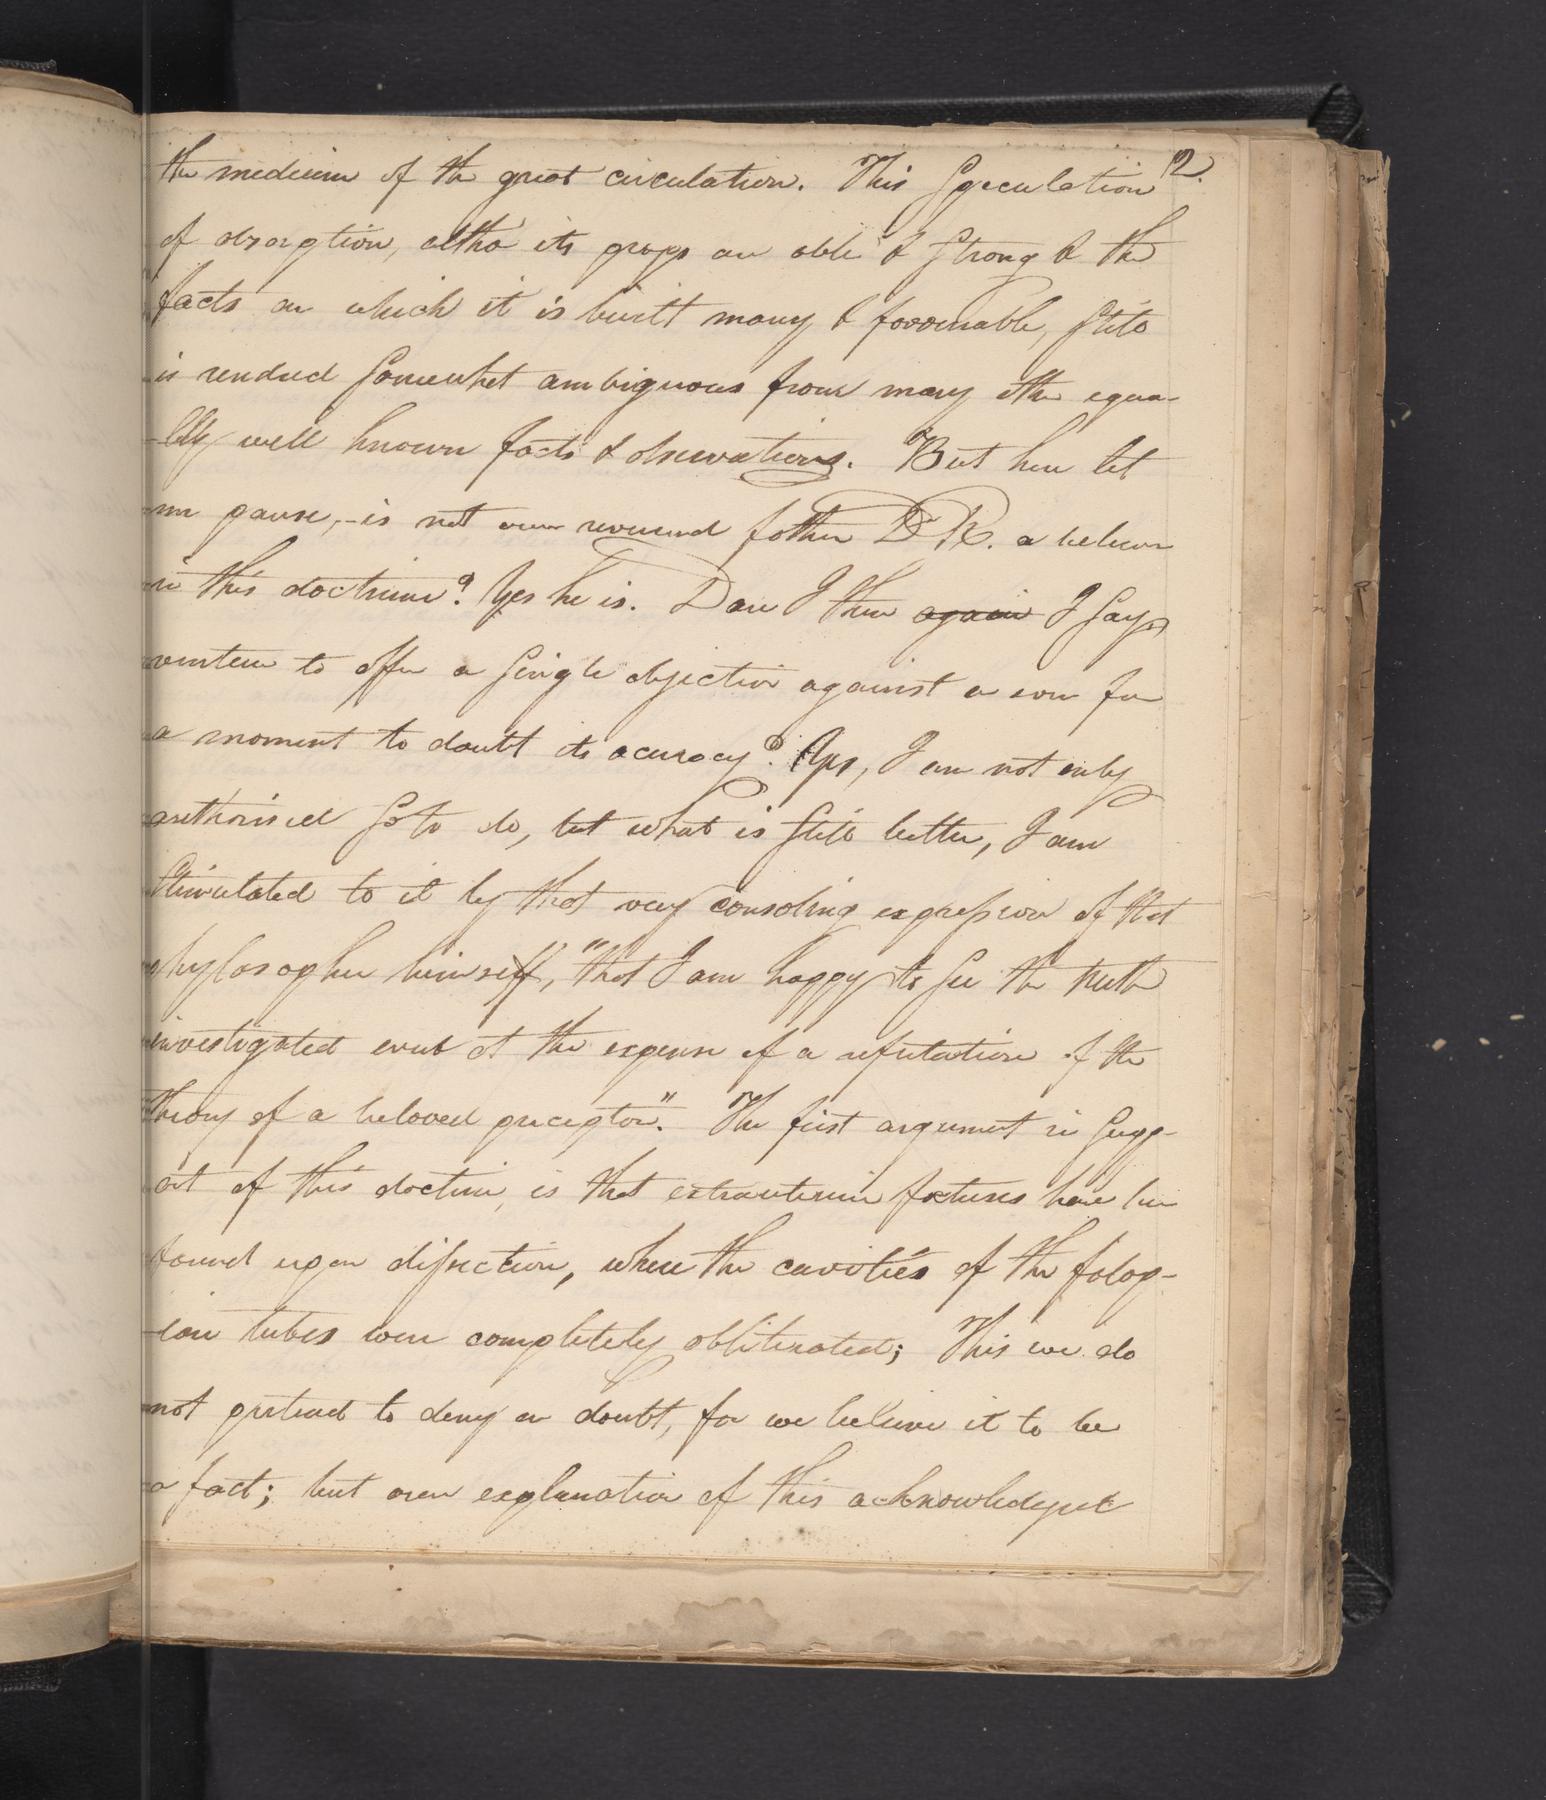 2.
the medium of the great circulation. This Speculation
of absorption, altho its props are able & Strong & the
facts on which it is built many & favourable, Still
is rendred Somewhat ambiguous from many other equa-
-lly well known facts & observations. But here let
me pause, - is not our reverend father Dr R. a believer
in this doctrine? Yes he is. Dare I then again I Say,
venture to offer a Single objection against or even for
a moment to doubt its acuracy? Yes, I am not only
authorised So to do, but what is Still better, I am
Stimulated to it by that very consoling expression of that
phylosopher himself, "that I am happy to See the truth
investigated even at the expense of a refutation of the
theory of a beloved preceptor." The first argument in Supp-
ort of this doctrine, is that extrauterine foetuses have been
found upon dissection, where the cavities of the falop-
-ian tubes were completely obliterated; This we do
not pretend to deny or doubt, for we believe it to be
a fact; but our explanation of this acknowledged